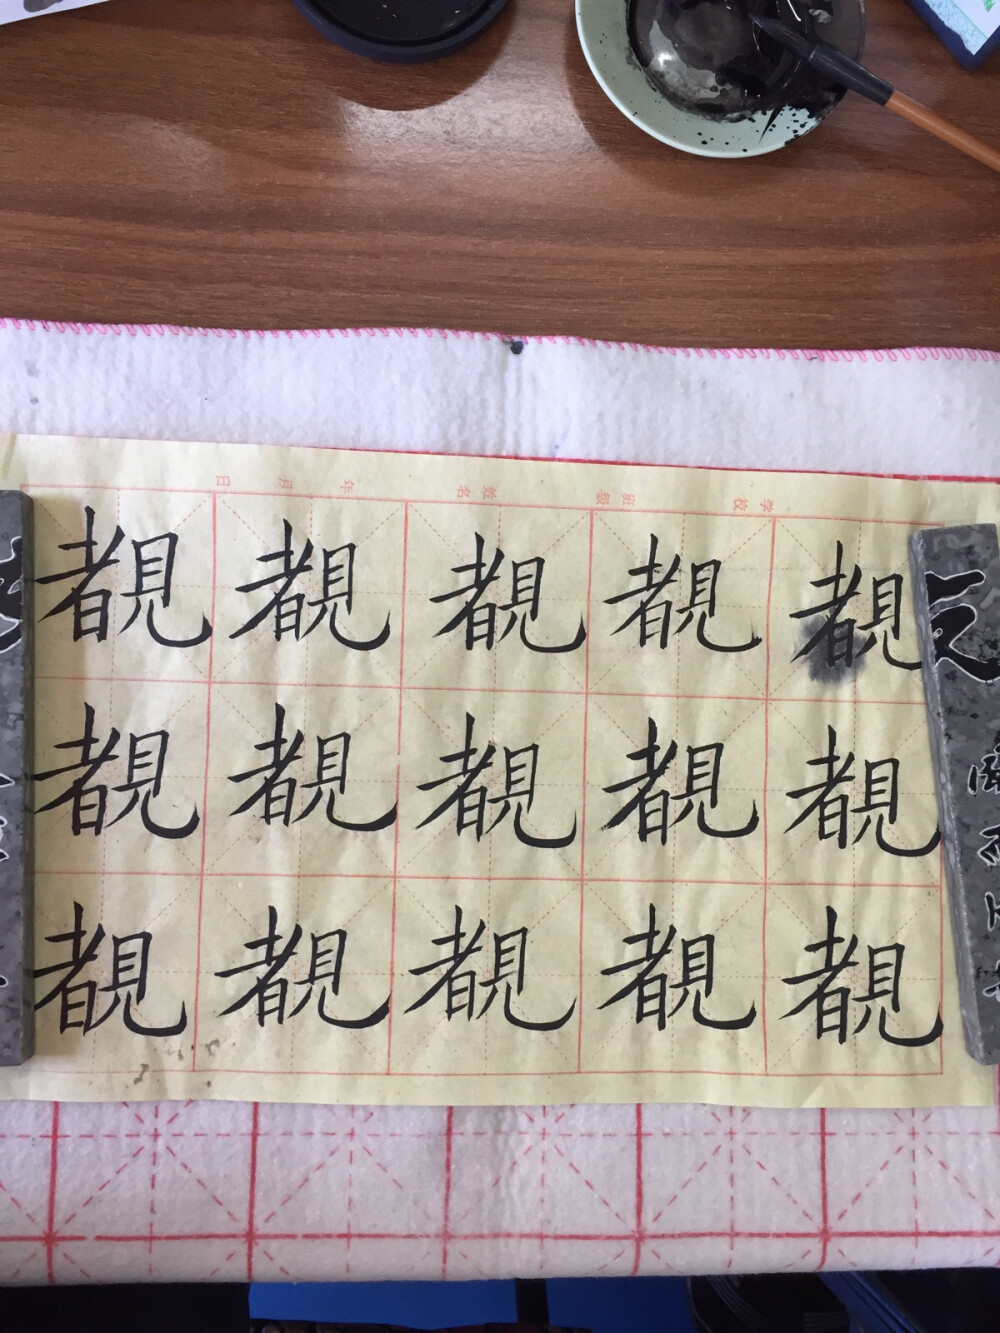 学校 班级 姓名 年 月 日
覩 覩 覩 覩 覩
覩 覩 覩 覩 覩
覩 覩 覩 覩 覩